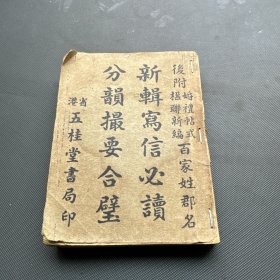 後附婚禮帖式
楹聯新編
百家姓郡名
新輯寫信必讀
分韻撮要合璧
省港五桂堂書局印